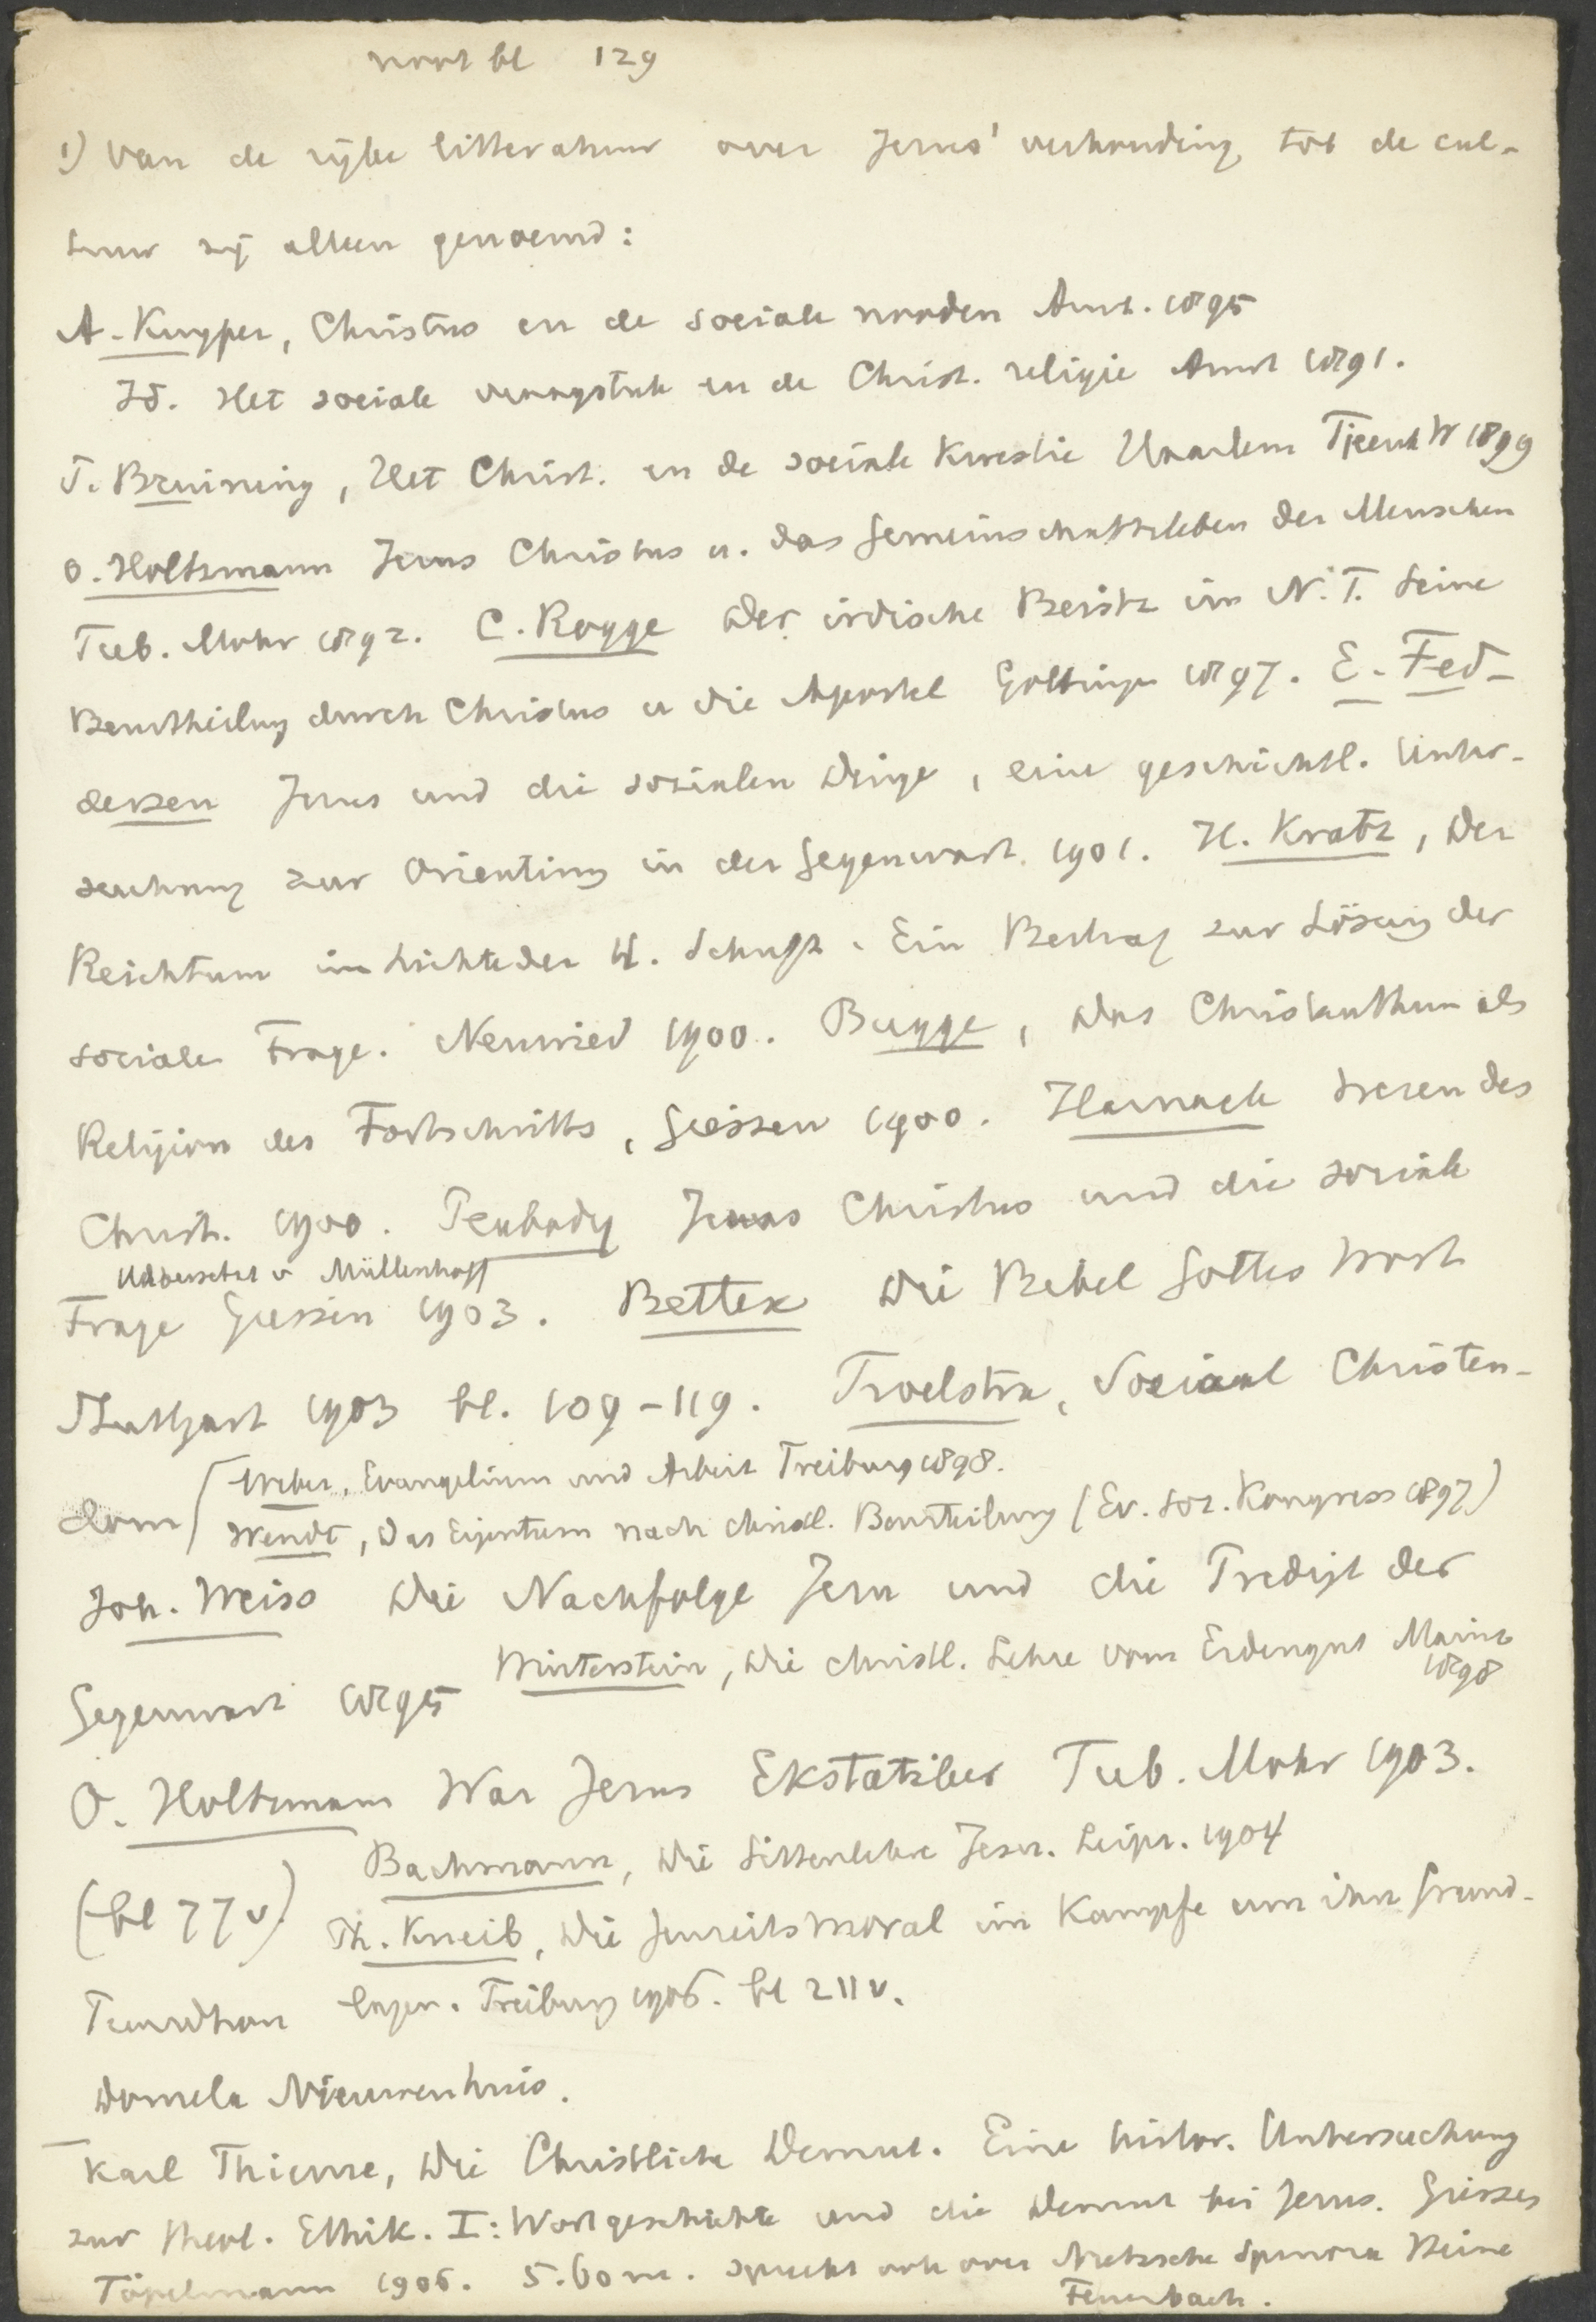 noot bl 129
1) Van de rijke litteratuur over Jezus' verhouding tot de cul-
tuur zij alleen genoemd:
A. Kuyper, Christus en de sociale nooden Amst. 1895
Id. Het sociale vraagstuk en de Christ. religie Amst 1891.
T. Bruining, Het Christ. en de sociale kwestie Haarlem Tjeenk W 1899
O. Holtzmann Jesus Christus u. das Gemeinschaftsleben der Menschen
Tub. Mohr 1892. C. Rogge Der irdische Besitz im N.T. Seine
Beurtheilung durch Christus u die Apostel Gottingen 1897. E. Fed-
dersen Jesus und die sozialen Dinge, eine geschichtl. Unter-
suchung zur Orientirung in der Gegenwart. 1901. H. Kratz, Der
Reichtum im Lichte der H. Schrift. Ein Beitrag zur Lösung der
socialen Frage. Neuwied 1900. Bugge, Das Christenthum als
Religion des Fortschritts, Giessen 1900. Harnack Wesen des
Christ. 1900. Peabody Jesus Christus und die sociale
Uebersetzt v Müllenhoff
Frage Giessen 1903. Bettex Die Bibel Gottes Wort
Stuttgart 1903 bl. 109-119. Troelstra, Sociaal Christen-
Weber, Evangelium und Arbeit Freiburg 1898.
dom Wendt, Das Eigentum nach christl. Beurteilung (Ev. soz. Kongress 1897)
Joh. Weiss Die Nachfolge Jesu und die Predigt der
Winterstein, Die christl. Lehre vom Erdengut Mainz
1898
Gegenwart 1895
O. Holtzmann War Jesus Ekstatiker Tub. Mohr 1903.
Bachmann, Die Sittenlehre Jesu. Leipz. 1904
(bl 77 v) Th. Kneib, Die Jenseitsmoral im Kampfe um ihre Grund-
lagen. Freiburg 1906. bl 211 v.
Domela Nieuwenhuis.
Karl Thieme, Die Christliche Demut. Eine histor. Untersuchung
zur theol. Ethik. I: Wortgeschichte und die Demut bei Jesus. Giessen
Töpelmann 1906. 5.60 m. spreekt ook over Nietzsche Spinoza Heine
Feuerbach.